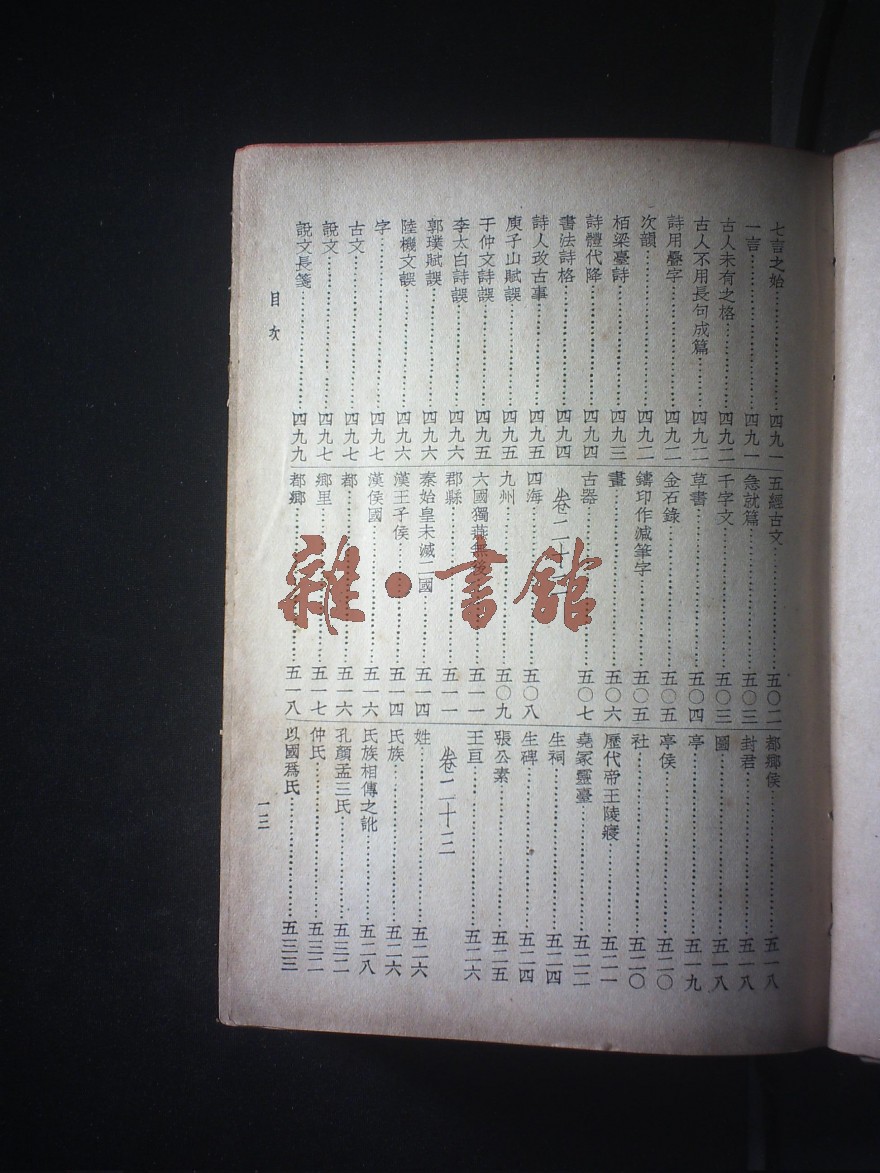 七言之始⋯⋯四九一
一言⋯⋯四九一
古人未有之格⋯⋯四九二
古人不用長句成篇⋯⋯四九二
詩用疊字⋯⋯四九二
次韻⋯⋯四九二
栢梁臺詩⋯⋯四九三
詩體代降⋯⋯四九四
書法詩格⋯⋯四九四
詩人改古事⋯⋯四九五
庾子山賦誤⋯⋯四九五
于仲文詩誤⋯⋯四九五
李太白詩誤⋯⋯四九六
郭璞賦誤⋯⋯四九六
陸機文誤⋯⋯四九六
字⋯⋯四九七
古文⋯⋯四九七
說文⋯⋯四九七
說文長箋⋯⋯四九九
五經古文⋯⋯五〇二
急就篇⋯⋯五〇三
千字文⋯⋯五〇三
草書⋯⋯五〇四
金石錄⋯⋯五〇五
鑄印作減筆字⋯⋯五〇五
畫⋯⋯五〇六
古器⋯⋯五〇七
卷二十
四海⋯⋯五〇八
九州⋯⋯五〇九
六國獨燕無⋯⋯五一一
郡縣⋯⋯五一一
秦始皇未滅二國⋯⋯五一四
漢王子侯⋯⋯五一四
漢侯國⋯⋯五一六
都⋯⋯五一六
鄉里⋯⋯五一七
都鄉⋯⋯五一八
都鄉侯⋯⋯五一八
封君⋯⋯五一八
圖⋯⋯五一八
亭⋯⋯五一九
亭侯⋯⋯五二〇
社⋯⋯五二〇
歷代帝王陵寢⋯⋯五二一
堯冢靈臺⋯⋯五二二
生祠⋯⋯五二四
生碑⋯⋯五二四
張公素⋯⋯五二五
王亘⋯⋯五二六
卷二十三
姓⋯⋯五二六
氏族⋯⋯五二六
氏族相傳之訛⋯⋯五二八
孔顏孟三氏⋯⋯五三二
仲氏⋯⋯五三二
以國爲氏⋯⋯五三三
目次
一三
雜·書館